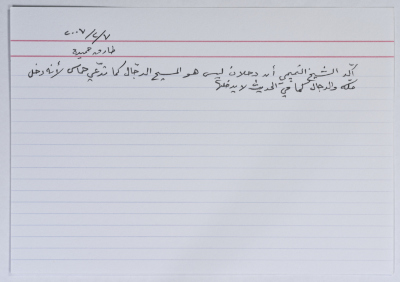 ٢٠٠٧/٢/٧
طارق حميدة
أكد الشيخ التميمي أن دحلان ليس هو المسيح الدجّال كما تدّعي حماس لأنه دخل
مكة والدجال كما في الحديث لا يدخلها